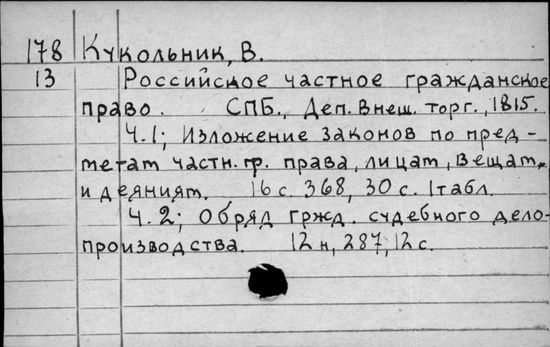 178 Кукольник, В.
13 Российское частное гражданское
право. СПБ., Деп. Внеш. торг., 1815.
Ч.1; Изложение законов по пред-
метам частн. гр. права, лицам, вещам,
и деяниям. 16 с. 368, 30 с. 1 табл.
Ч.2; Обряд гржд. судебного дело-
производства. 12 н, 287, 12 с.